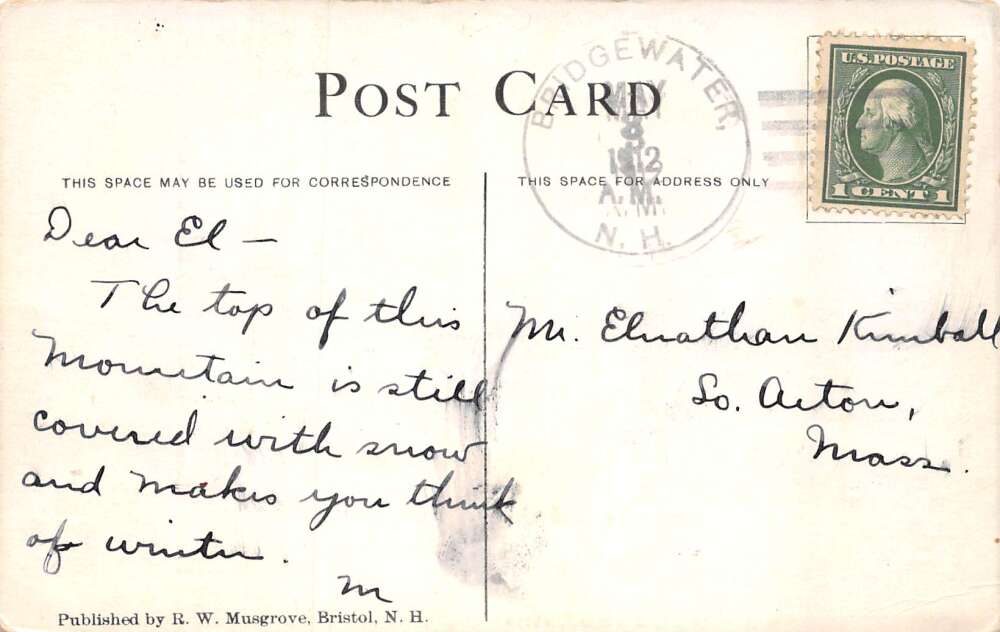 POST CARD
BRIDGEWATER,
MAY
1912
A.M.
N. H.
U.S. POSTAGE
1 CENT 1
THIS SPACE MAY BE USED FOR CORRESPONDENCE
THIS SPACE FOR ADDRESS ONLY
Dear El —
The top of this
Mountain is still
covered with snow
and makes you think
of winter.
M
Mr. Elnathan Kimball
So. Acton,
Mass.
Published by R. W. Musgrove, Bristol, N. H.